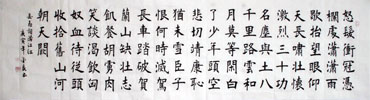 怒髮衝冠憑
欄處瀟瀟雨
歇抬望眼仰
天長嘯壯懷
激烈三十功
名塵與土八
千里路雲和
月莫等閒白
了少年頭空
悲切靖康恥
猶未雪臣子
恨何時滅駕
長車踏破賀
蘭山缺壯志
飢餐胡虜肉
笑談渴飲匈
奴血待從頭
收拾舊山河
朝天闕
岳飛詞滿江紅
庚寅年